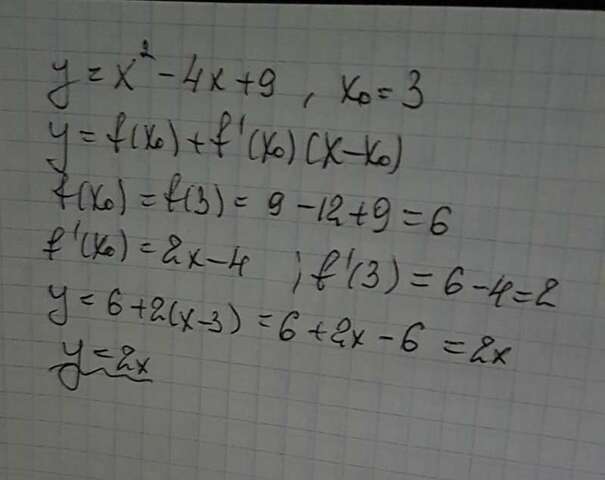 y = x² - 4x + 9 , x₀ = 3
y = f(x₀) + f'(x₀)(x - x₀)
f(x₀) = f(3) = 9 - 12 + 9 = 6
f'(x₀) = 2x - 4 ; f'(3) = 6 - 4 = 2
y = 6 + 2(x - 3) = 6 + 2x - 6 = 2x
y = 2x